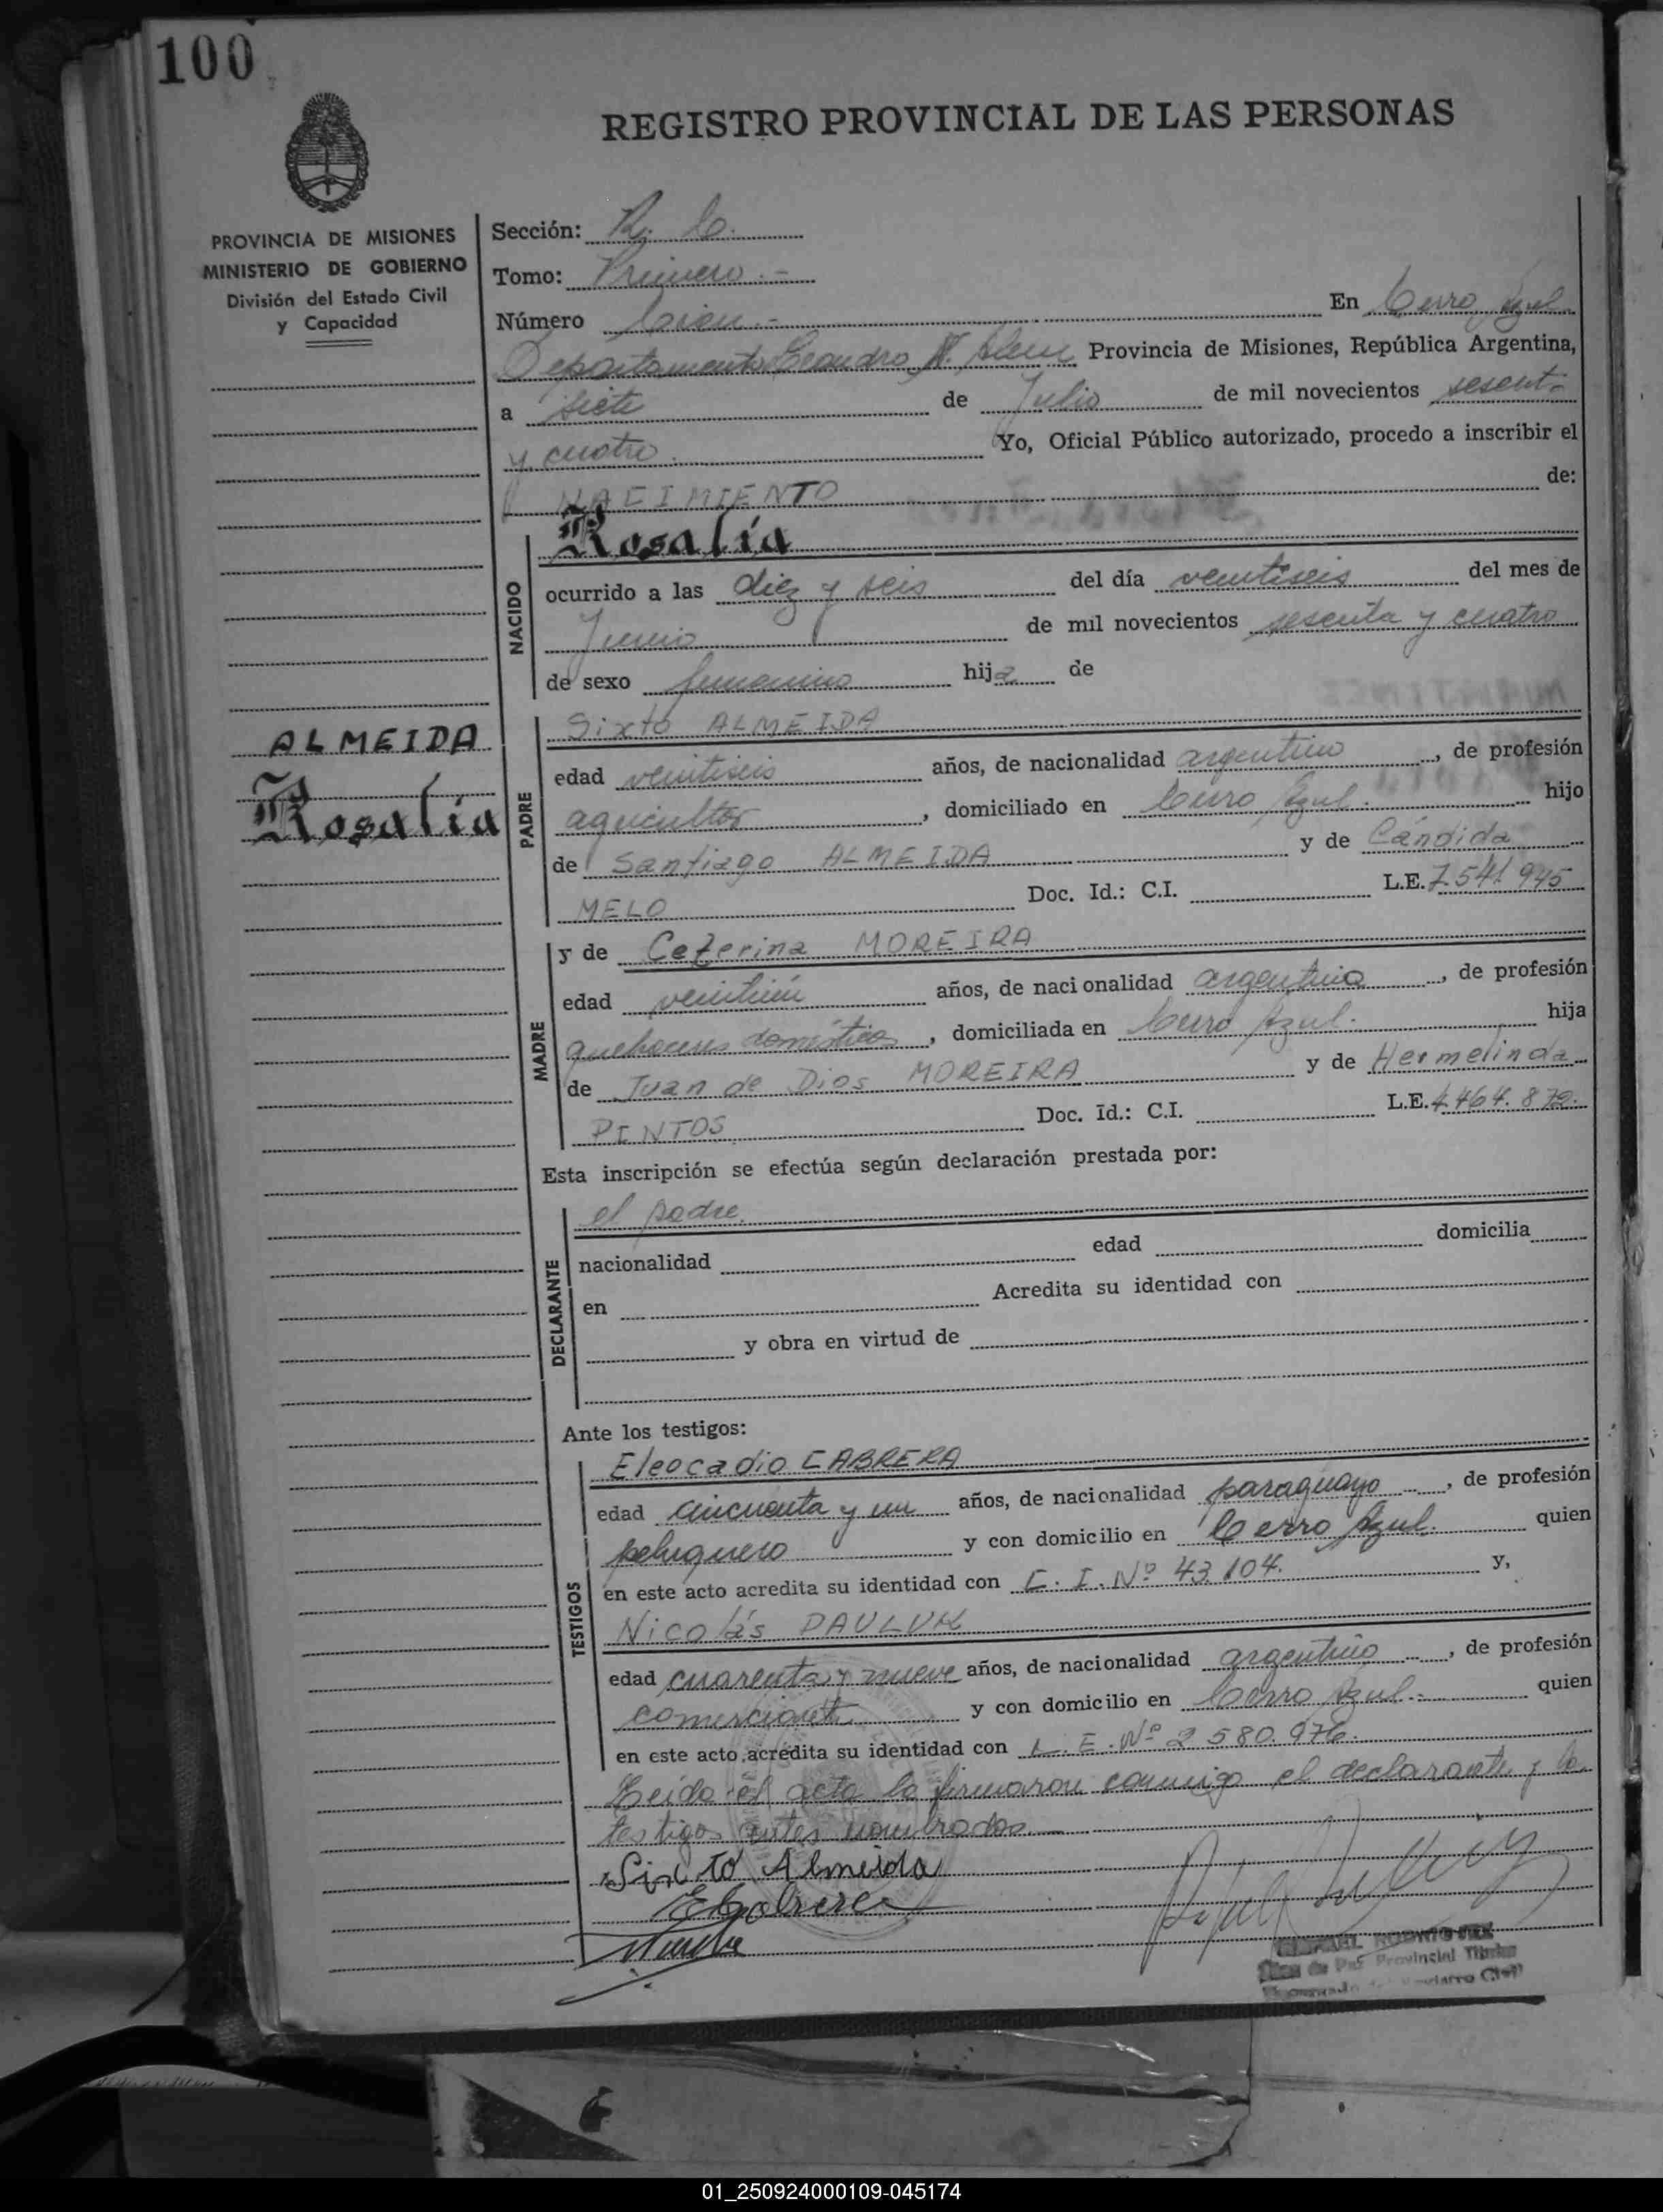 100
REGISTRO PROVINCIAL DE LAS PERSONAS
PROVINCIA DE MISIONES
MINISTERIO DE GOBIERNO
División del Estado Civil
y Capacidad
Sección: R. C.
Tomo: Primero.-
Número Cien.- En Cerro Azul
Departamento Leandro N. Alem Provincia de Misiones, República Argentina,
a siete de Julio de mil novecientos sesenta
y cuatro. Yo, Oficial Público autorizado, procedo a inscribir el
NACIMIENTO de:
NACIDO
Rosalía
ocurrido a las diez y seis del día veintiseis del mes de
Junio de mil novecientos sesenta y cuatro
de sexo femenino hija de
ALMEIDA
Rosalía
PADRE
Sixto ALMEIDA
edad veintiseis años, de nacionalidad argentino, de profesión
agricultor, domiciliado en Cerro Azul. hijo
de Santiago ALMEIDA y de Cándida
MELO Doc. Id.: C.I. L.E. 7.541.945
MADRE
y de Ceferina MOREIRA
edad veintiún años, de nacionalidad argentina, de profesión
quehaceres domésticos, domiciliada en Cerro Azul. hija
de Juan de Dios MOREIRA y de Hermelinda
PINTOS Doc. Id.: C.I. L.E. 4.464.872.
Esta inscripción se efectúa según declaración prestada por:
DECLARANTE
el padre.
nacionalidad edad domicilia
en Acredita su identidad con
y obra en virtud de
Ante los testigos:
TESTIGOS
Eleocadio CABRERA
edad cincuenta y un años, de nacionalidad paraguayo, de profesión
peluquero y con domicilio en Cerro Azul. quien
en este acto acredita su identidad con C. I. Nº 43.104. y,
Nicolás PAULUK
edad cuarenta y nueve años, de nacionalidad argentino, de profesión
comerciante y con domicilio en Cerro Azul.- quien
en este acto acredita su identidad con L. E. Nº 2.580.976.
Leída el acta la firmaron conmigo el declarante y los
testigos antes nombrados.-
Sixto Almeida
ECabrera
RAFAEL RODRIGUEZ
Juez de Paz Provincial Titular
Encargado del Registro Civil
01_250924000109-045174